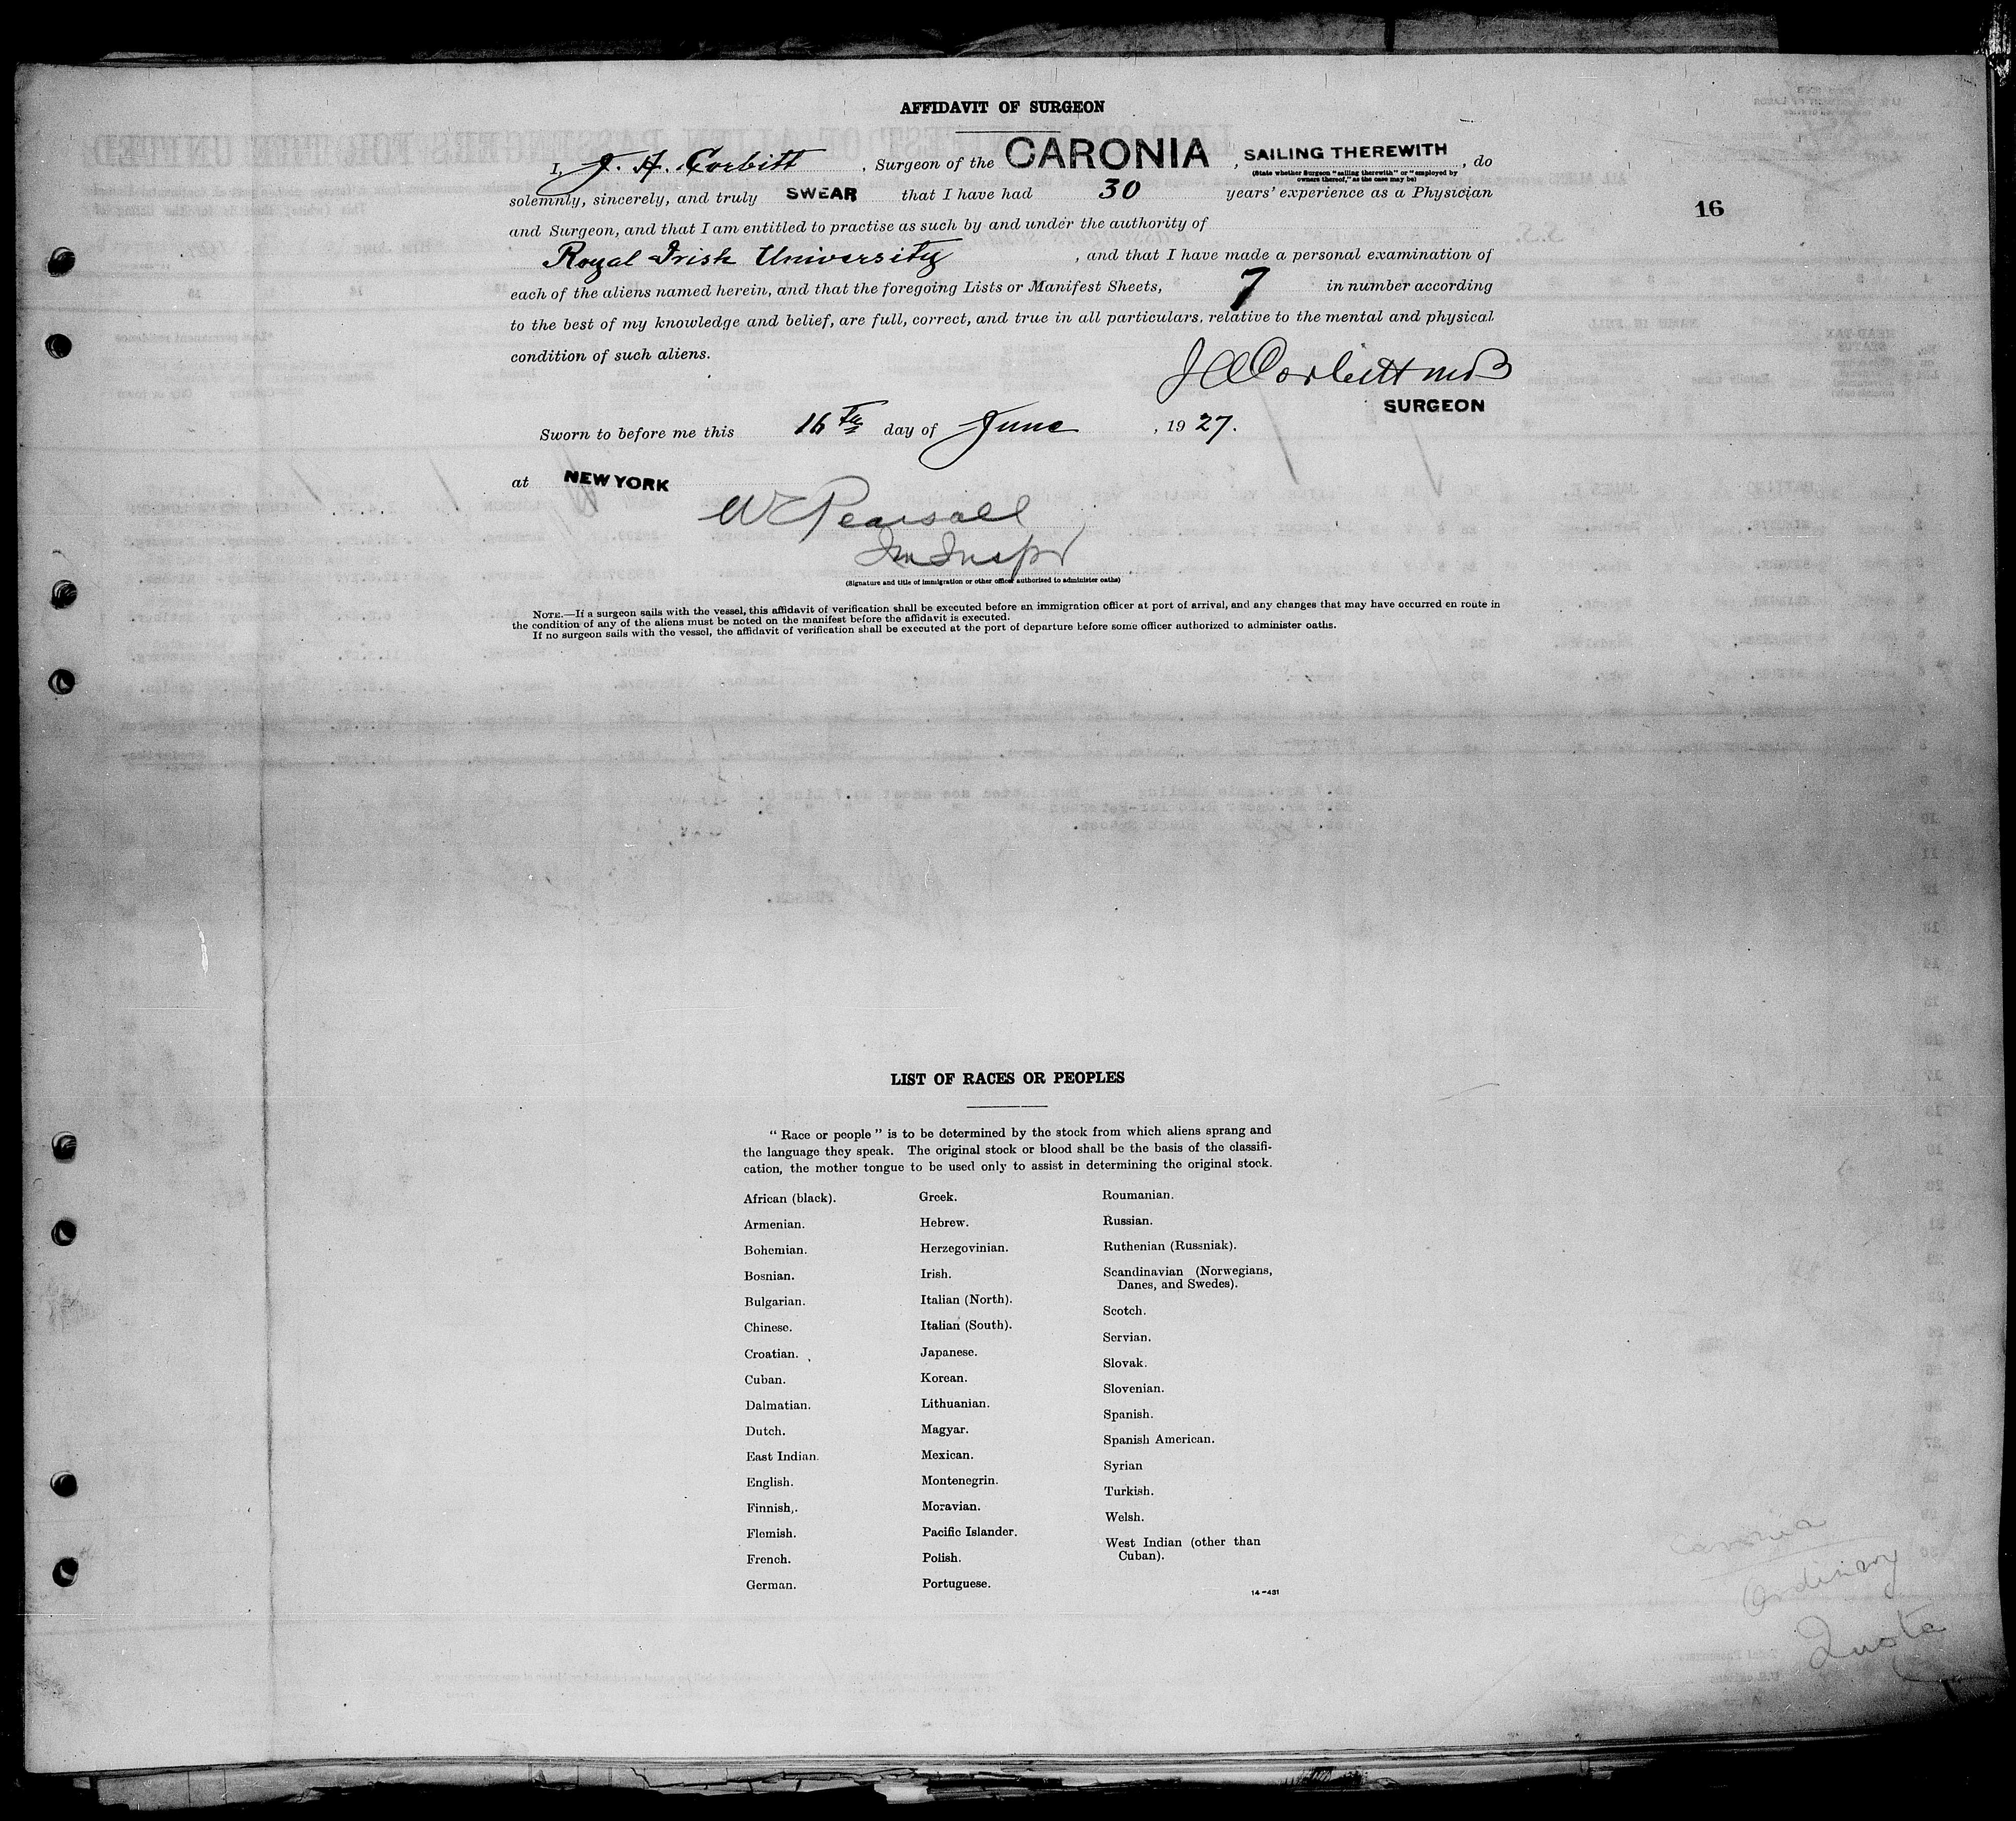 AFFIDAVIT OF SURGEON
I, J. A. Corbitt, Surgeon of the CARONIA, SAILING THEREWITH, do
(State whether Surgeon "sailing therewith" or "employed by
owners thereof," as the case may be)
solemnly, sincerely, and truly SWEAR that I have had 30 years' experience as a Physician
and Surgeon, and that I am entitled to practise as such by and under the authority of
Royal Irish University, and that I have made a personal examination of
16
each of the aliens named herein, and that the foregoing Lists or Manifest Sheets, 7 in number according
to the best of my knowledge and belief, are full, correct, and true in all particulars, relative to the mental and physical
condition of such aliens.
J A Corbitt MB
SURGEON
Sworn to before me this 16th day of June, 1927.
at NEW YORK
W C Pearsall
Im Inspr
(Signature and title of immigration or other officer authorized to administer oaths)
NOTE.—If a surgeon sails with the vessel, this affidavit of verification shall be executed before an immigration officer at port of arrival, and any changes that may have occurred en route in
the condition of any of the aliens must be noted on the manifest before the affidavit is executed.
If no surgeon sails with the vessel, the affidavit of verification shall be executed at the port of departure before some officer authorized to administer oaths.
LIST OF RACES OR PEOPLES
"Race or people" is to be determined by the stock from which aliens sprang and
the language they speak. The original stock or blood shall be the basis of the classifi-
cation, the mother tongue to be used only to assist in determining the original stock.
African (black).
Armenian.
Bohemian.
Bosnian.
Bulgarian.
Chinese.
Croatian.
Cuban.
Dalmatian.
Dutch.
East Indian.
English.
Finnish,.
Flemish.
French.
German.
Greek.
Hebrew.
Herzegovinian.
Irish.
Italian (North).
Italian (South).
Japanese.
Korean.
Lithuanian.
Magyar.
Mexican.
Montenegrin.
Moravian.
Pacific Islander.
Polish.
Portuguese.
Roumanian.
Russian.
Ruthenian (Russniak).
Scandinavian (Norwegians,
Danes, and Swedes).
Scotch.
Servian.
Slovak.
Slovenian.
Spanish.
Spanish American.
Syrian
Turkish.
Welsh.
West Indian (other than
Cuban).
14-431
Caronia
Ordinary
Quota